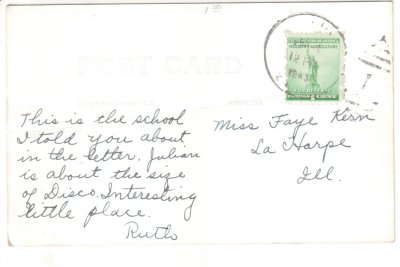 1 50
POST CARD
CORRESPONDENCE
ADDRESS
UNITED STATES OF AMERICA
INDUSTRY AGRICULTURE
FOR DEFENSE
This is the school
I told you about
in the letter. Julian
is about the size
of Disco. Interesting
little place.
Ruth
Miss Faye Kern
La Harpe
Ill.